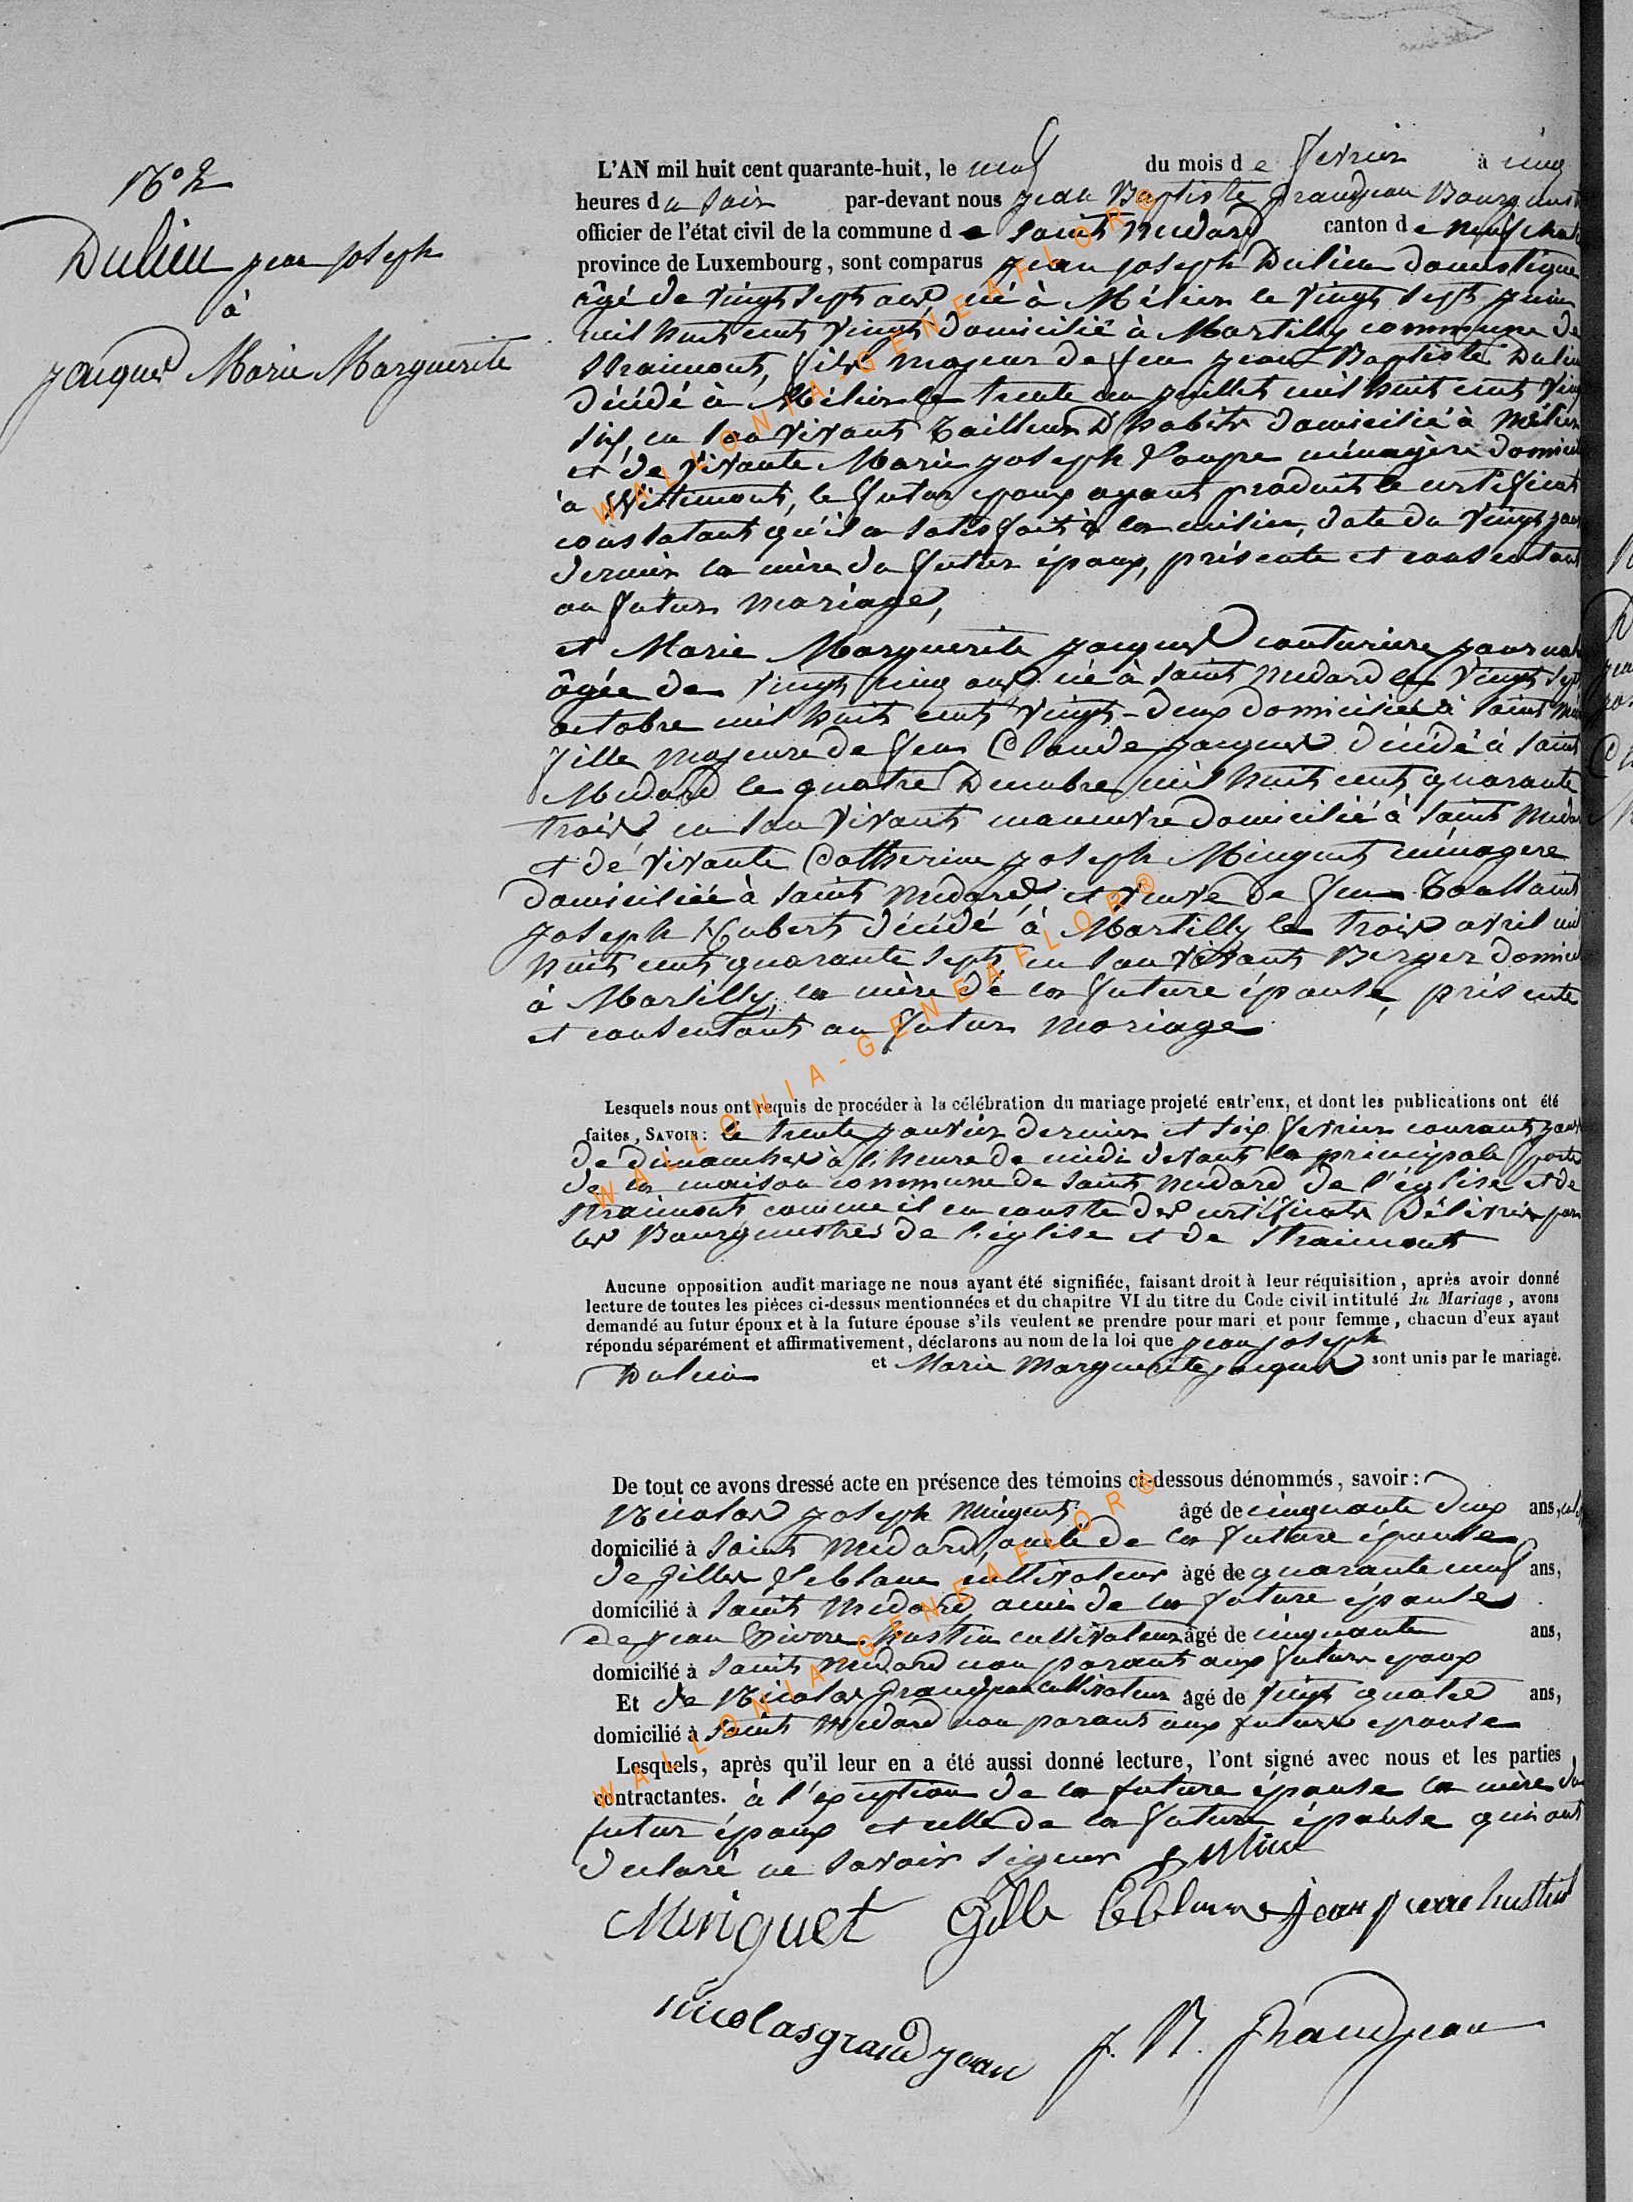 N° 2
Dulieu jean joseph
à
jacques Marie Marguerite
L'AN mil huit cent quarante-huit, le neuf du mois de fevrier à cinq
heures du soir par-devant nous jean Baptiste Grandjean Bourgmest
officier de l'état civil de la commune de saint medard canton de neufchat
province de Luxembourg, sont comparus jean joseph Dulieu domestique
âgé de vingt sept ans, né à Mélier le vingt sept juin
mil huit cent vingt domicilié à Martilly commune de
straimont, fils majeur de feu jean Baptiste Dulieu
décédé à Mélier le trente un juillet mil huit cent ving
six, en son vivant tailleur d'habits domicilié à Mélier
et de vivante Marie joseph ménagère domicil
à Wittimont, le futur epoux ayant produit le certificat
constatant qu'il a satisfait à la milice, date du vingt janv
dernier la mère du futur époux, présente et consentant
au futur mariage,
et Marie Marguerite jacques couturiere journal
âgée de vingt cinq ans né à saint medard le vingt sept
octobre mil huit cent vingt-deux domiciliée à saint me
fille majeure de feu Claude jacques décédé à saint
Medard le quatre Decembre mil huit cent quarante
trois en son vivant manœuvre domicilié à saint Méda
et de vivante Catherine joseph Minguet ménagere
domiciliée à saint medard, et veuve de feu Toussaint
joseph Hubert décédé à Martilly le trois avril mil
huit cent quarante sept en son vivant Berger domicil
à Martilly, la mère de la future épouse, présente
et consentant au futur mariage
Lesquels nous ont requis de procéder à la célébration du mariage projeté entr'eux, et dont les publications ont été
faites, SAVOIR: le trente janvier dernier et six fevrier courant jours
de dimanches à l'heure de midi devant la principale porte
de la maison commune de saint medard de l'église et de
straimont comme il en conste des certificats délivrés par
les Bourgmestres de l'église et de straimont
Aucune opposition audit mariage ne nous ayant été signifiée, faisant droit à leur réquisition, après avoir donné
lecture de toutes les pièces ci-dessus mentionnées et du chapitre VI du titre du Code civil intitulé du Mariage, avons
demandé au futur époux et à la future épouse s'ils veulent se prendre pour mari et pour femme, chacun d'eux ayant
répondu séparément et affirmativement, déclarons au nom de la loi que jean joseph
Dulieu et Marie Marguerite jacques sont unis par le mariage.
De tout ce avons dressé acte en présence des témoins ci-dessous dénommés, savoir:
Nicolas joseph Minguet âgé de cinquante deux ans,
domicilié à saint medard, oncle de la future épouse
de gilles leblanc cultivateur âgé de quarante neuf ans,
domicilié à saint medard ami de la future épouse
de jean pierre hustin cultivateur âgé de cinquante ans,
domicilié à saint medard non parant aux futurs epoux
Et de Nicolas Grandjean cultivateur âgé de vingt quatre ans,
domicilié à saint medard non parant aux futurs epouse
Lesquels, après qu'il leur en a été aussi donné lecture, l'ont signé avec nous et les parties
contractantes. à l'exception de la future épouse la mère du
futur époux et celle de la future épouse qui ont
declaré ne savoir signer Dulieu
Minguet Gille leblanc jean pierre hustin
nicolas grandjean J. B. Grandjean
WALLONIA-GENEAFLOR®
WALLONIA-GENEAFLOR®
WALLONIA-GENEAFLOR®